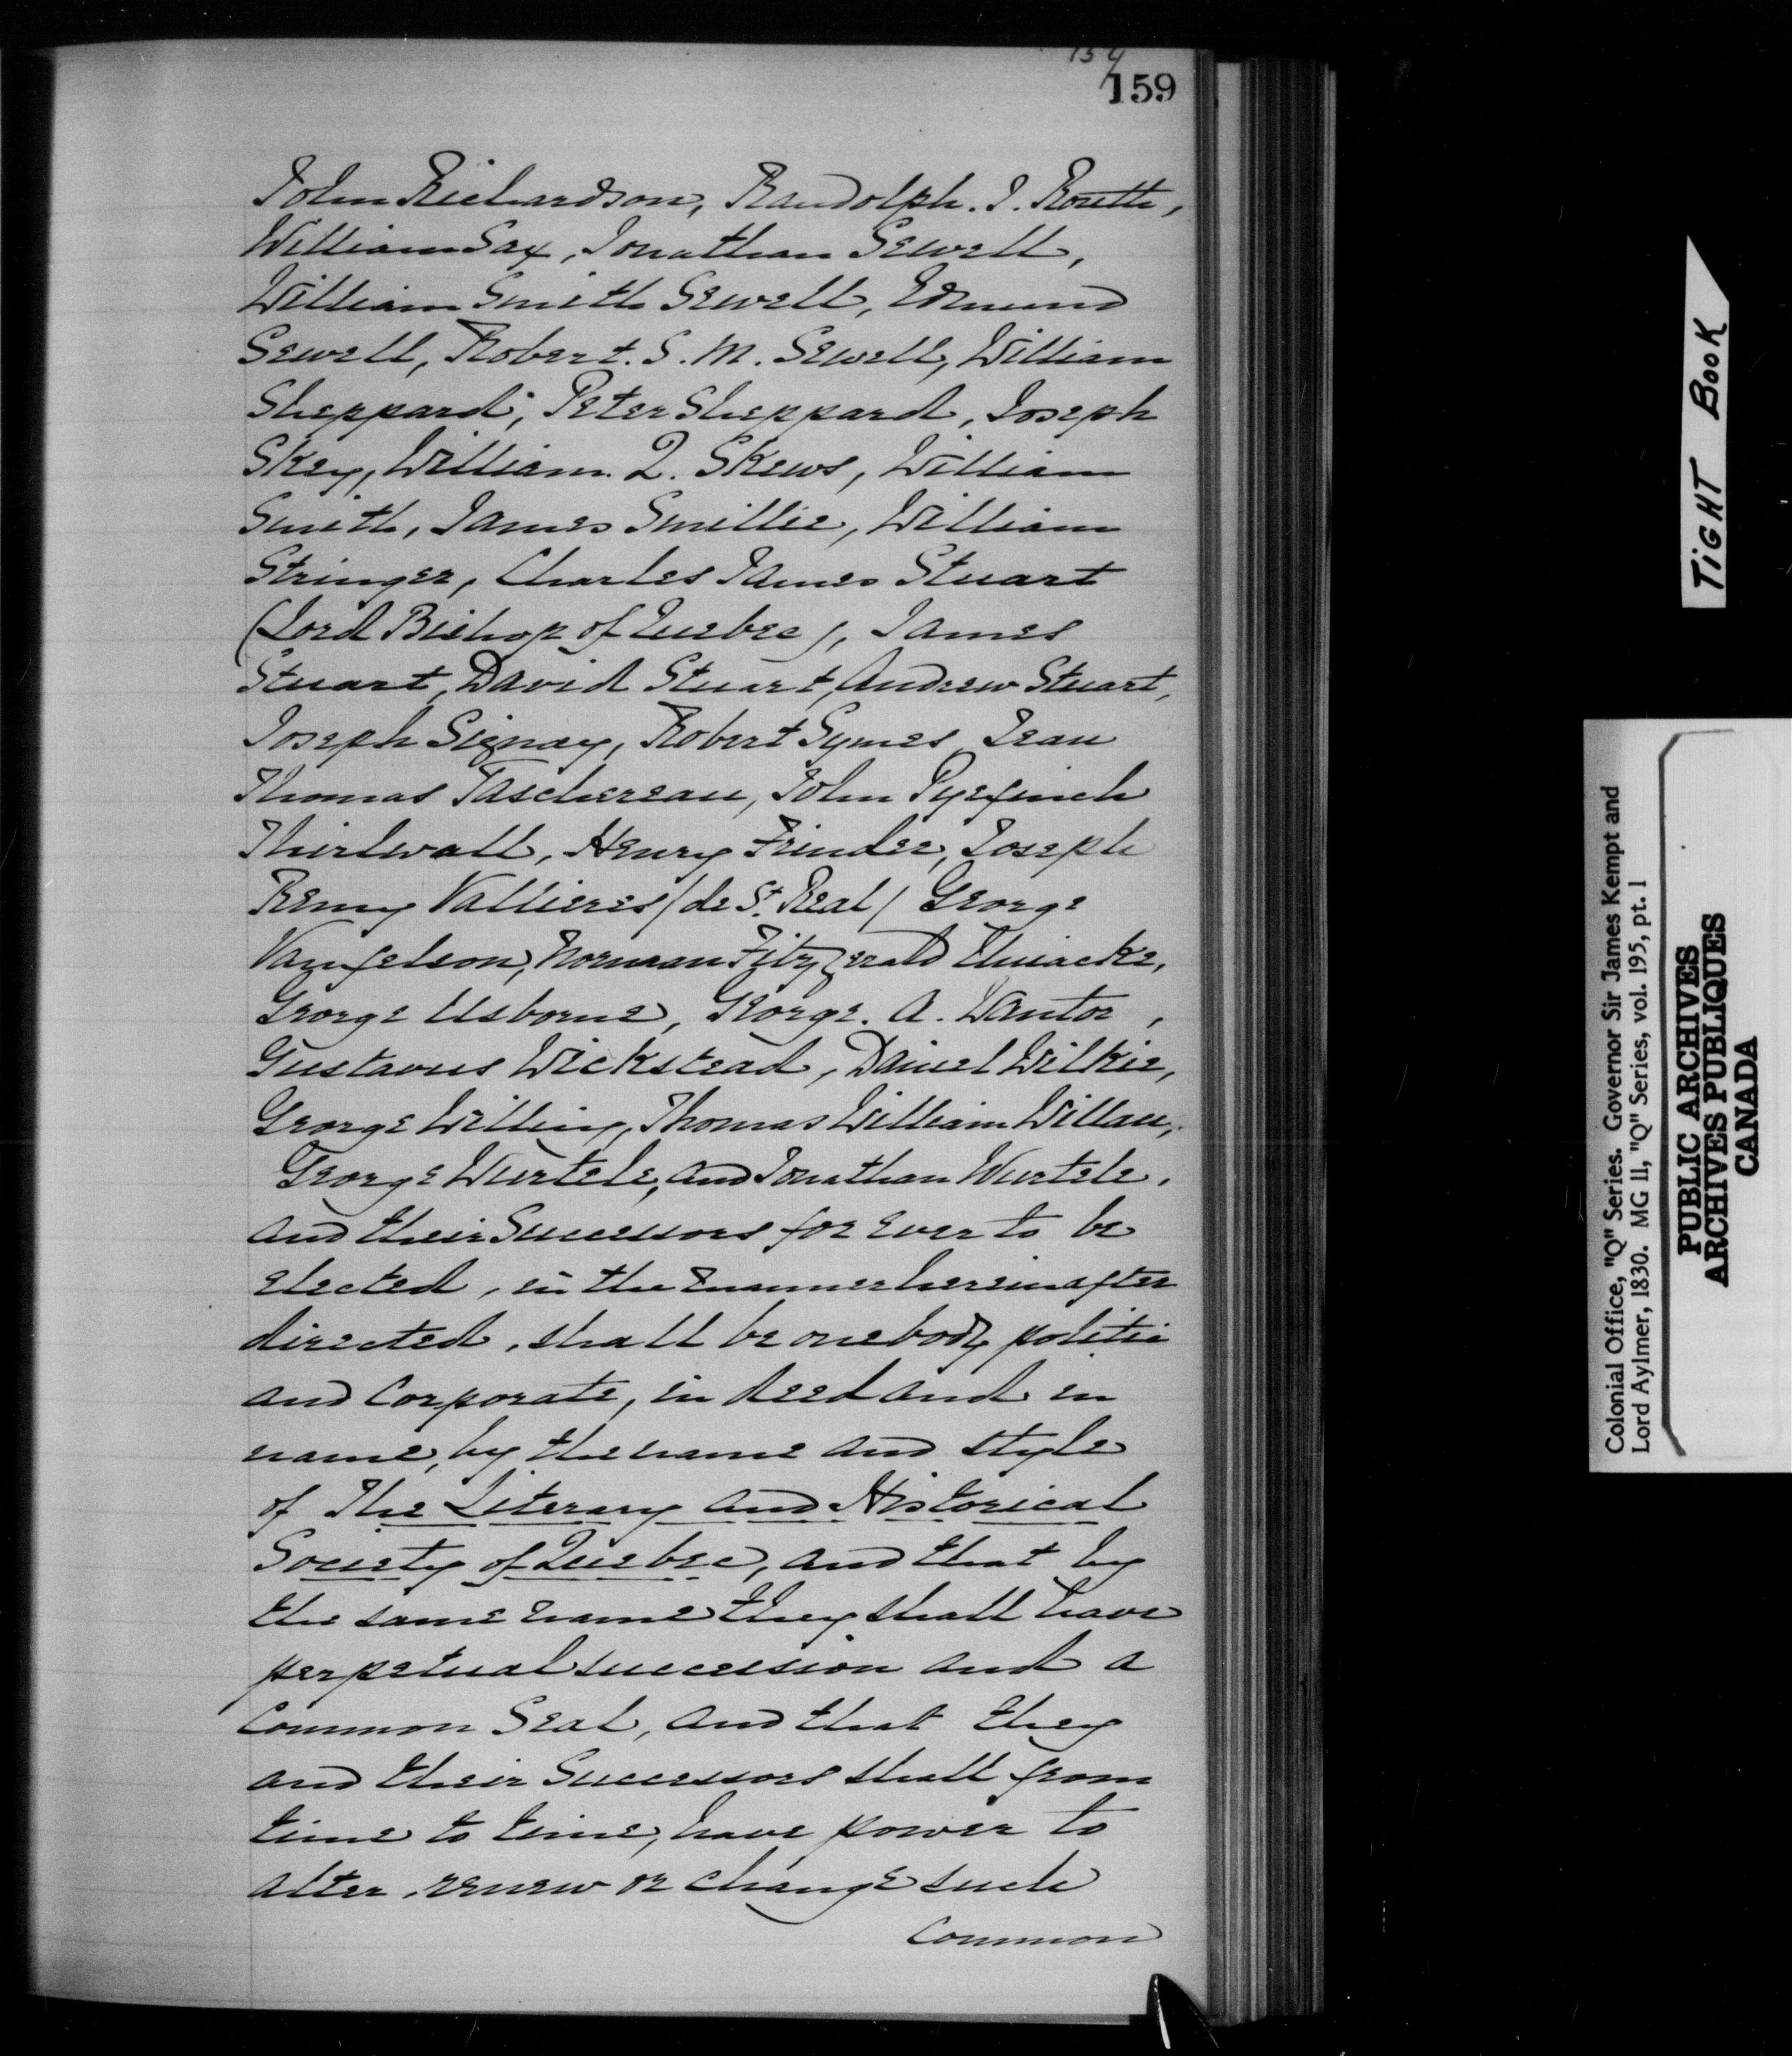 159
John Richardson, Randolph. I. Routh,
William Sax, Jonathan Sewell,
William Smith Sewell, Edmund
Sewell, Robert. S. M. Sewell, William
Sheppard, Peter Sheppard, Joseph
Skey, William. 2. Skews, William
Smith, James Smillie, William
Stringer, Charles James Stuart
(Lord Bishop of Quebec), James
Stuart, David Stuart, Andrew Stuart,
Joseph Signay, Robert Symes, Jean
Thomas Taschereau, John Pyefinch
Thirlwall, Henry Trinder, Joseph
Remy Vallieres (de St. Real) George
Vanfelson, Norman Fitzgerald Uniacke,
George Usborne, George. A. Vantor,
Gustavus Wickstead, Daniel Wilkie,
George Willing, Thomas William Willan,
George Wurtele, and Jonathan Wurtele,
and their Successors for ever to be
elected, in the manner hereinafter
directed, shall be one body politic
and corporate, in deed and in
name, by the name and style
of The Literary and Historical
Society of Quebec, and that by
the same name they shall have
perpetual succession and a
Common Seal, and that they
and their Successors shall from
time to time, have power to
alter, renew or change such
Common
TIGHT BOOK
Colonial Office, "Q" Series. Governor Sir James Kempt and
Lord Aylmer, 1830. MG 11, "Q" Series, vol. 195, pt. 1
PUBLIC ARCHIVES
ARCHIVES PUBLIQUES
CANADA